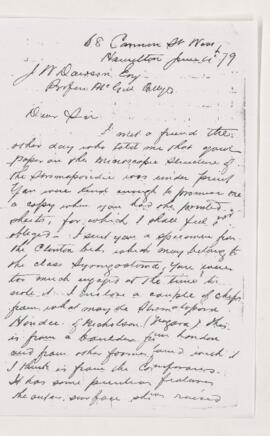 68 Cannon St West
Hamilton June 4th /79
J. W. Dawson Esq
Profess McGill College
Dear Sir
I met a friend the
other day who told me that your
Paper on the Microscopic Structure of
the Stromaporidae was under press
You were kind enough to promise me
a copy when you had the printed
sheets, for which I shall feel
obliged. I sent you a specimen from
the Clinton beds, which may belong to
the class you were
too much engaged at the time to
note it. I enclose a couple of chips
from what may be Stromatopora
Hindei of Nicholson (Niagara) This
is from a
and from other forms with it
I think is from the
It has some peculiar features
the outer surface shows raised